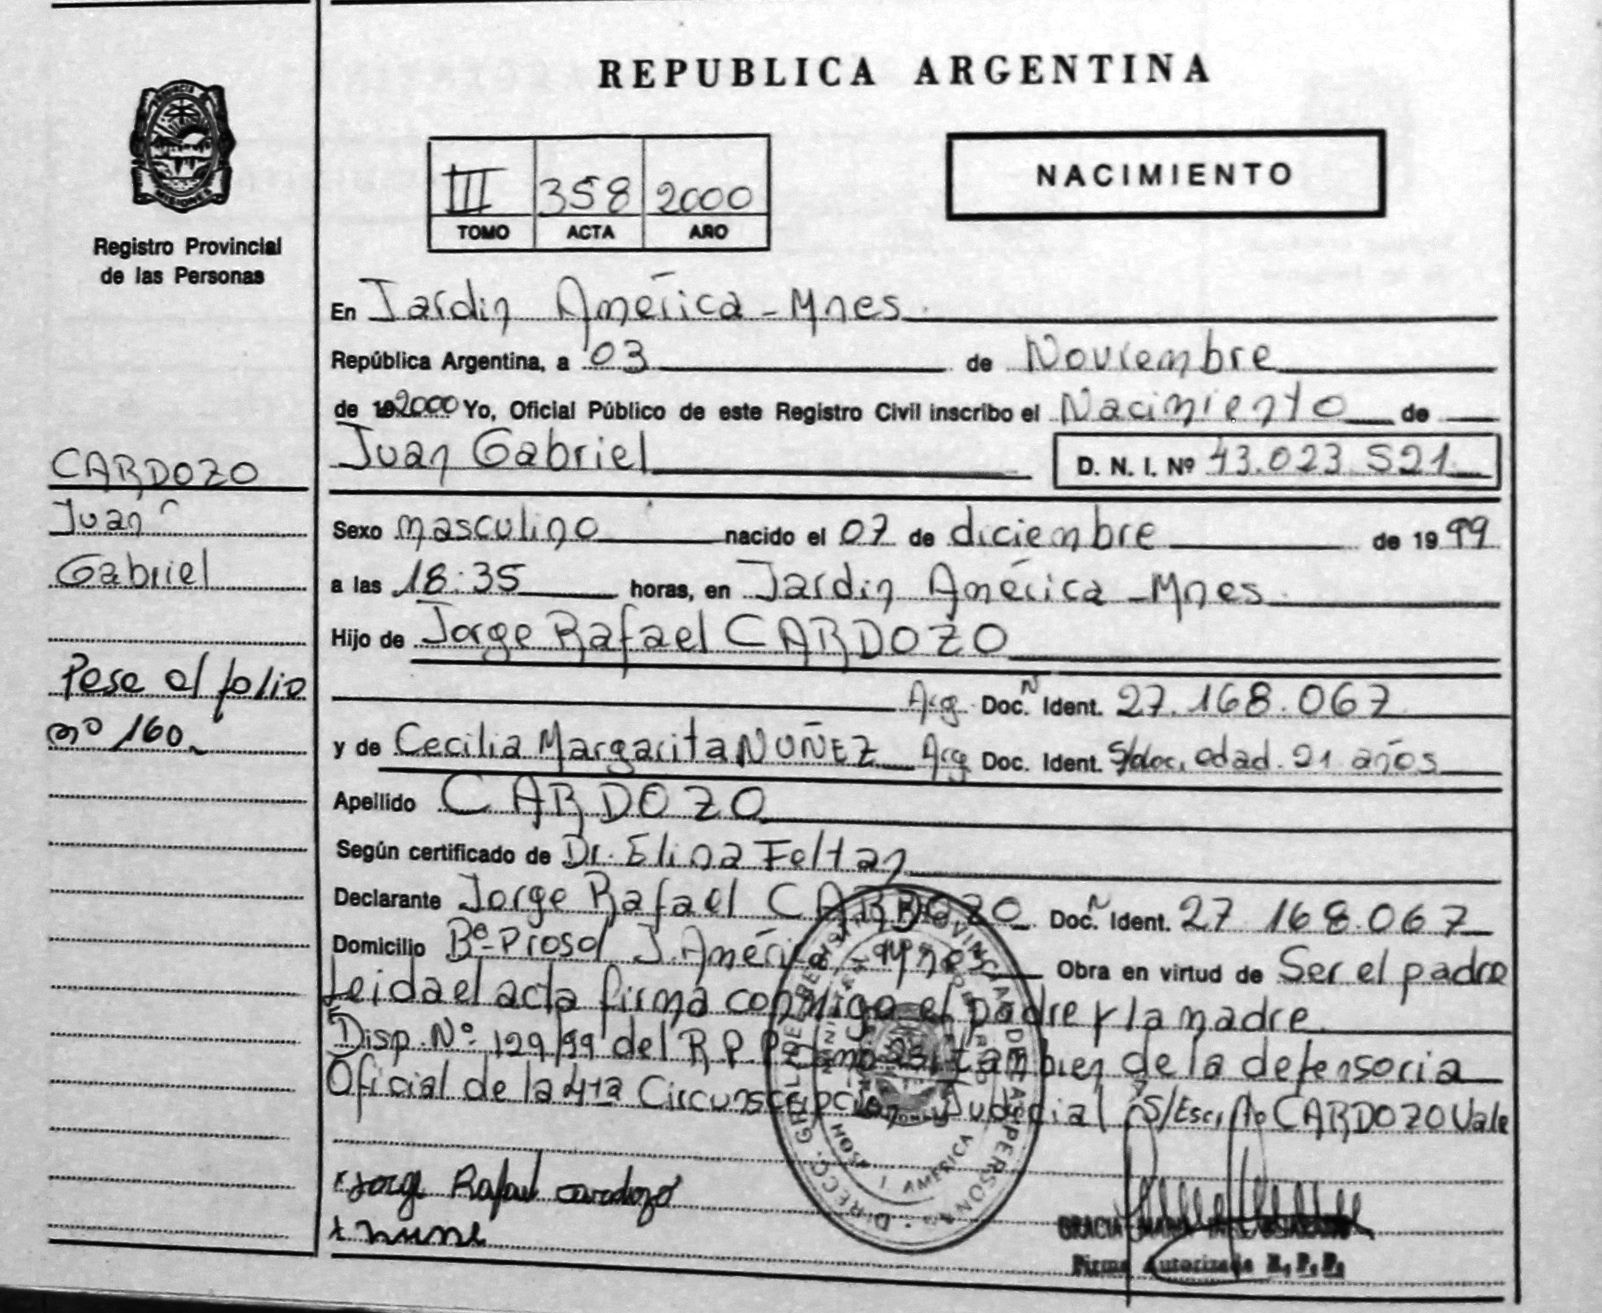 REPUBLICA ARGENTINA
PROVINCIA
MISIONES
Registro Provincial
de las Personas
III 358 2000
TOMO ACTA AÑO
NACIMIENTO
En Jardin América - Mnes.
República Argentina, a 03 de Noviembre
de 192000 Yo, Oficial Público de este Registro Civil inscribo el Nacimiento de
Juan Gabriel D. N. I. Nº 43.023 521
Sexo masculino nacido el 07 de diciembre de 1999
a las 18:35 horas, en Jardin América - Mnes.
Hijo de Jorge Rafael CARDOZO
Arg. Doc. N Ident. 27.168.067
y de Cecilia Margarita NUÑEZ Arg Doc. Ident. S/doc, edad. 21 años
Apellido CARDOZO
Según certificado de Dr. Elina Feltan
Declarante Jorge Rafael CARDOZO Doc. N Ident. 27 168.067
Domicilio Bº-Prosol J. América Mnes Obra en virtud de Ser el padre
Leida el acta firma conmigo el padre y la madre.
Disp. Nº: 129/99 del R P P como asi tambien de la defensoria
Oficial de la 4ta Circunscripcion Judicial S/Esc, No CARDOZO Vale
Jorge Rafael cardozo
Firma Autorizada R. P. P.
CARDOZO
Juan
Gabriel
Pase al folio
nº 160.